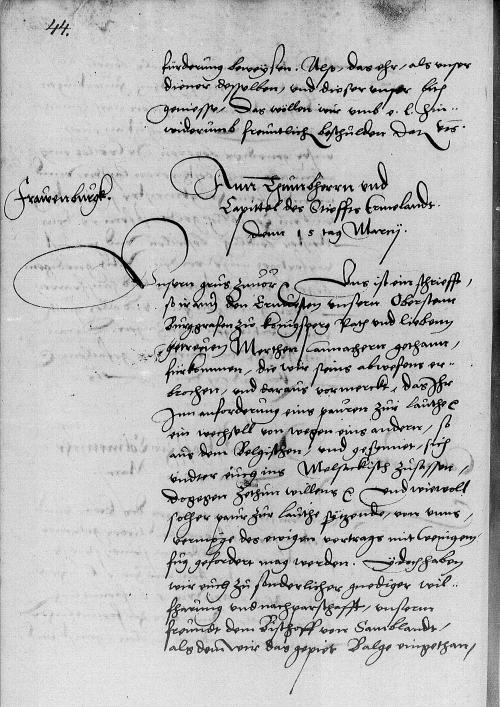 44.
fürderung beweysen. Also, das ehr, als unser
diener desselben, und dieser unser bith
geniesse, Das wöllen wir umb e. l. hin-
widerumb freuntlich beschulden Dat. uts.
Frawenburgk.
Ann Thumbherrn und
Capittel des Stieffts Ermelandt.
Denn 15 tag Martij.
Unsern grus zuvor Uns ist ein schriefft,
so ir ann den Ernvesten unsern Obersten
Burggrafen zu Königsperg Rath und lieben
getreuen Merthen Cannachern gethann,
fürkommen, die wir seins abwesens er-
brochen, und daraus vormerckt, das Ihr
Inn anforderung eins pauren zur Lauthe
ein wechsell von wegen eins andern, so
aus dem Balgischen, und gesynnet, sich
undter euch ins Melsackisch zusetzen,
Dogegen zethun willens Und wiewoll
solher paur zur Lauthe sitzende, von uns,
vermöge des ewigen vortrags mit wenigem
fug gefordert mag werden. Ydoch haben
wir euch zu sonderlicher gnediger wil-
fharung und nachparschafft, unserm
freundt dem Bischoff von Samblandt,
als dem wir das gepiet Balge eingethan,